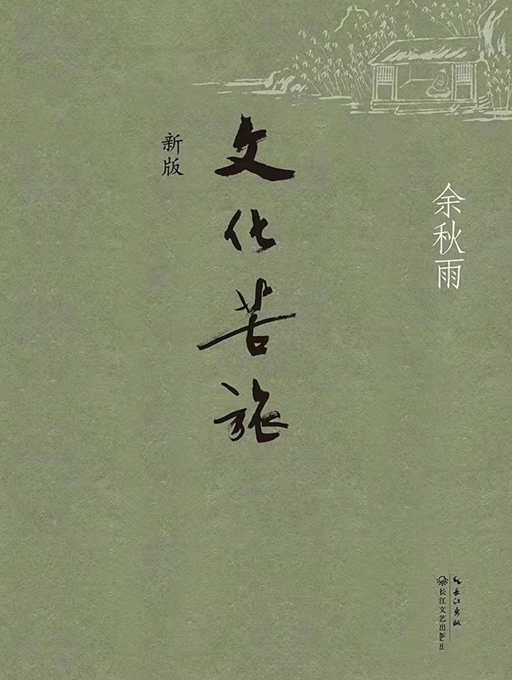 余秋雨
文化苦旅
新版
长江出版
长江文艺出版社